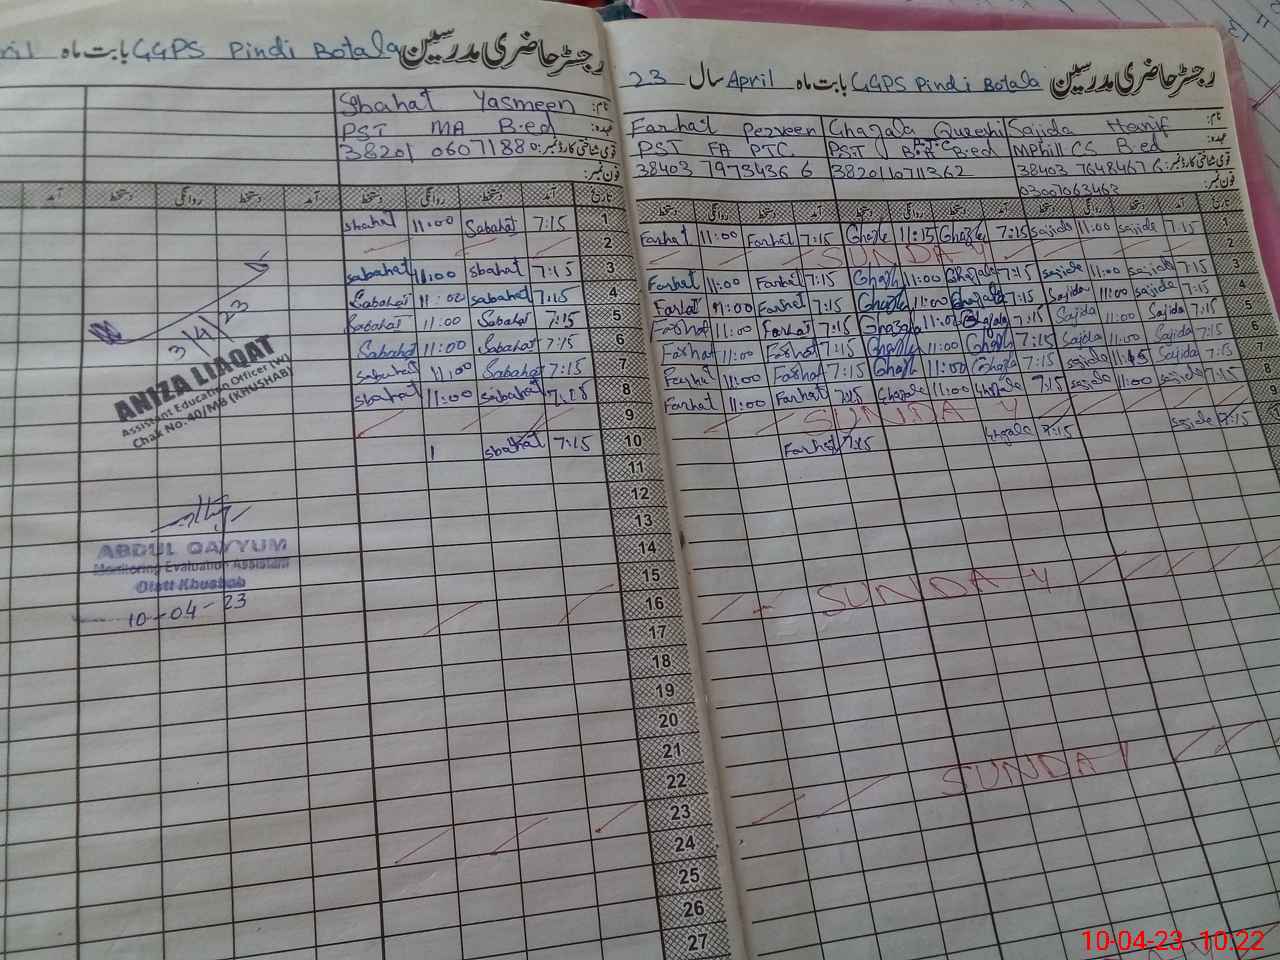 رجسٹر حاضری مدرسین GGPS Pindi Botala بابت ماہ
Sbahat Yasmeen نام:
PST MA B.ed عہدہ:
قومی شناختی کارڈ نمبر:
فون نمبر:
تاریخ آمد دستخط روانگی دستخط آمد دستخط روانگی دستخط آمد
1 7:15 Sabahat 11:00 sbahat
2
3 7:15 sbahat 11:00 sabahat
4 7:15 sabahat 11:00 Sabahat
5 7:15 Sabahat 11:00 Sabahat
6 7:15 Sabahat 11:00 Sabahat
7 7:15 Sabahat 11:00 sabahat
8 sabahat 11:00 sbahat
9
10 7:15 sbahat
11
12
13
14
15
16
17
18
19
20
21
22
23
24
25
26
27
3/4/23
ANIZA LIAQAT
Assistant Education Officer (W)
Chak No.40/MB (KHUSHAB)
ABDUL QAYYUM
Monitoring Evaluation Assistant
Distt Khushab
10-04-23
رجسٹر حاضری مدرسین GGPS Pindi Botala بابت ماہ April سال 23
Farhat Perveen Ghazala Qureshi Sajida Hanif نام:
PST FA PTC PST B.A B.ed MPhill CS B.ed عہدہ:
38403 7973436 6 38201 1071136 2 38403 7648467 6 قومی شناختی کارڈ نمبر:
03007063463 فون نمبر:
دستخط روانگی دستخط آمد دستخط روانگی دستخط آمد دستخط روانگی دستخط آمد تاریخ
Farhat 11:00 Farhat 7:15 11:15 7:15 sajida 11:00 sajide 7:15 1
SUNDAY 2
Farhat 11:00 Farhat 7:15 11:00 Ghazala 7:15 sajida 11:00 sajida 7:15 3
Farhat 11:00 Farhat 7:15 11:00 Ghazala 7:15 Sajida 11:00 sajida 7:15 4
Farhat 11:00 Farhat 7:15 Ghazala Ghazala 7:15 Sajida 11:00 Sajida 7:15 5
Farhat 11:00 Farhat 7:15 11:00 7:15 Sajida 11:00 Sajida 7:15 6
Farhat 11:00 Farhat 7:15 11:00 7:15 sajida Sajida 7:15 7
Farhat 11:00 Farhat 7:15 Ghazala 11:00 Ghazala 7:15 sajida 11:00 sajida 7:15 8
SUNDAY 9
Farhat 7:15 Ghazala 7:15 sajide 7:15
SUNDAY
SUNDAY
10-04-23 10:22